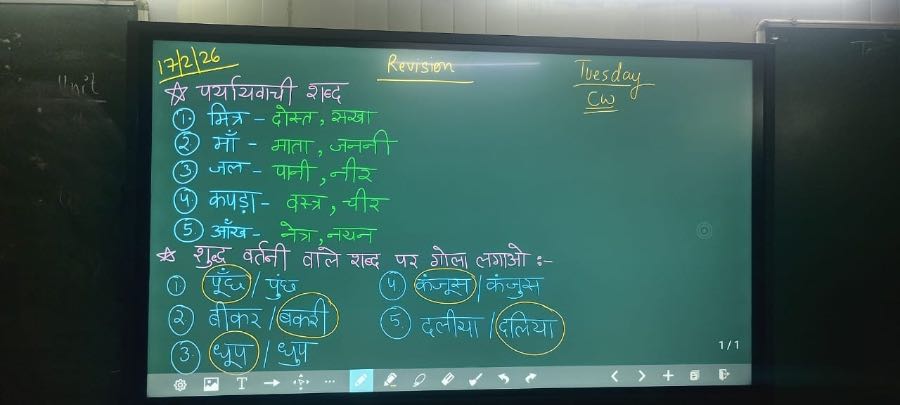 17/2/26
Revision
Tuesday
CW
Unit
☆ पर्यायवाची शब्द
① मित्र - दोस्त, सखा
② माँ - माता, जननी
③ जल - पानी, नीर
④ कपड़ा - वस्त्र, चीर
⑤ आँख - नेत्र, नयन
☆ शुद्ध वर्तनी वाले शब्द पर गोला लगाओ :-
① पूँछ / पुंछ
④ कंजूस / कंजुस
② बीकर / बकरी
⑤ दलीया / दलिया
③ धूप / धुप
1/1